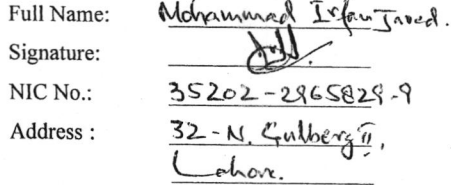 Full Name: Mohammad Irfan Javed.
Signature:
NIC No.: 35202-2965829-9
Address : 32-N, Gulberg II,
Lahore.